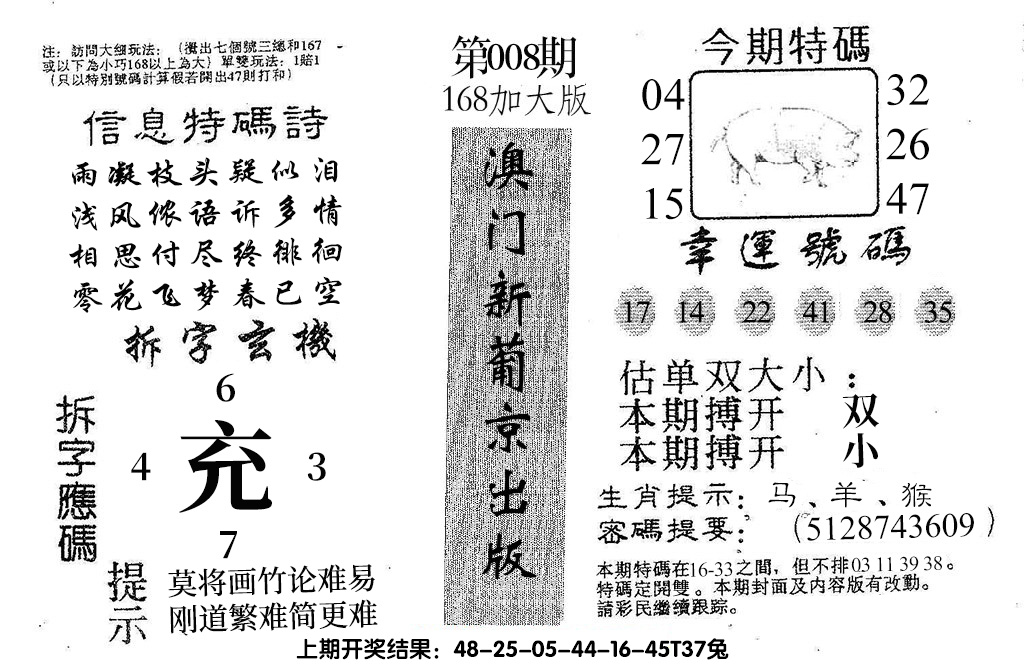 注：訪問大细玩法：（攪出七個號三總和167
或以下為小巧168以上為大）單雙玩法：1賠1
（只以特別號碼計算假若開出47則打和）
信息特碼詩
雨凝枝头疑似泪
浅风侬语诉多情
相思付尽终徘徊
零花飞梦春已空
拆字玄機
拆字應碼
6
4 充 3
7
提示
莫将画竹论难易
刚道繁难简更难
第008期
168加大版
澳门新葡京出版
今期特碼
04 32
27 26
15 47
幸運號碼
17 14 22 41 28 35
估单双大小：
本期搏开 双
本期搏开 小
生肖提示：马、羊、猴
密碼提要：（5128743609）
本期特碼在16-33之間，但不排03 11 39 38。
特碼定開雙。本期封面及内容版有改動。
請彩民繼續跟踪。
上期开奖结果：48-25-05-44-16-45T37兔